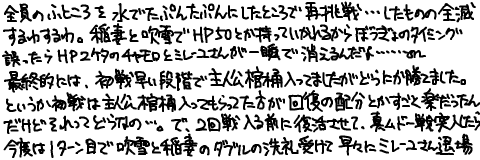 全員のふところを水でたぷんたぷんにしたところで再挑戦…したものの全滅
するわするわ。稲妻と吹雪でHP50とか持っていかれるからぼうぎょのタイミング
誤ったらHP2ケタのチャモロとミレーユさんが一瞬で消えるんだよ……orz
最終的には、初戦早い段階で主人公棺桶入ってましたがどうにか勝てました。
というか初戦は主人公棺桶入っててもらってた方が回復の配分とかすごく楽だったん
だけどそれってどうなの…。で、2回戦入る前に復活させて、裏ムドー戦突入したら
今度は1ターン目で吹雪と稲妻のダブルの洗礼受けて早々にミレーユさん退場